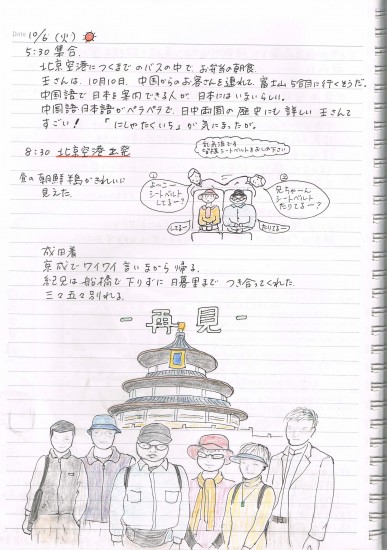 Date 10/6 (火)
5:30 集合.
北京空港につくまでのバスの中で、お弁当の朝食.
王さんは、10月10日、中国からのお客さんを連れて、富士山 5合目に行くそうだ。
中国語で日本を案内できる人が、日本にはいないらしい。
中国語・日本語がペラペラで、日中両国の歴史にも詳しい 王さんて
すごい! 「にしゃたくいち」が気にまったが。
8:30 北京空港出発
乱気流です
皆様シートベルトをおしめ下さい
昼の朝鮮半島がきれいに
見えた.
①
よっこー
シートベルト
してるー?
②
兄ちゃーん
シートベルト
たりてるー?
してるー
たりてるー
成田着
京成でワイワイ言いながら帰る.
紀兄は船橋で下りずに日暮里までつき合ってくれた.
三々五々別れる.
-再見-